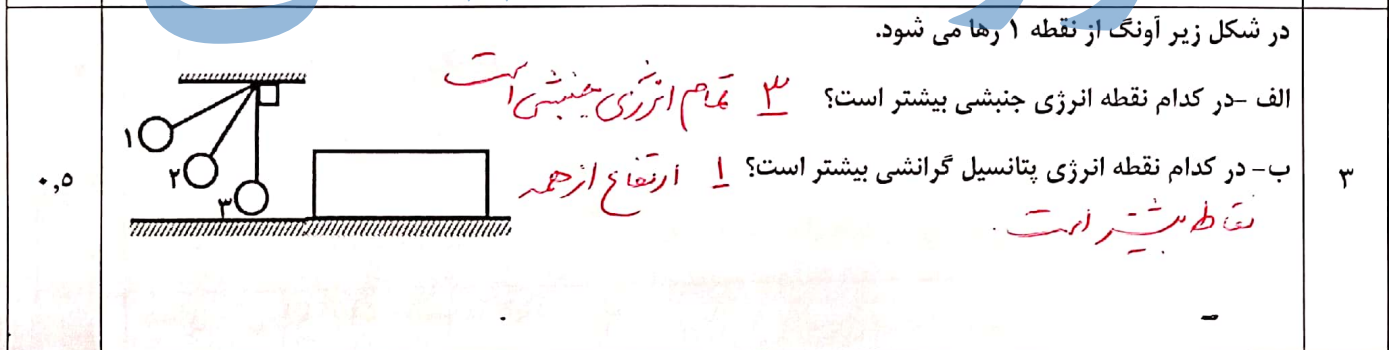 در شکل زیر آونگ از نقطه ۱ رها می شود.
الف -در کدام نقطه انرژی جنبشی بیشتر است؟ ۳ تمام انرژی جنبشی است
ب- در کدام نقطه انرژی پتانسیل گرانشی بیشتر است؟ ۱ ارتفاع از همه
نقاط بیشتر است.
۳
۰,۵
۱
۲
۳